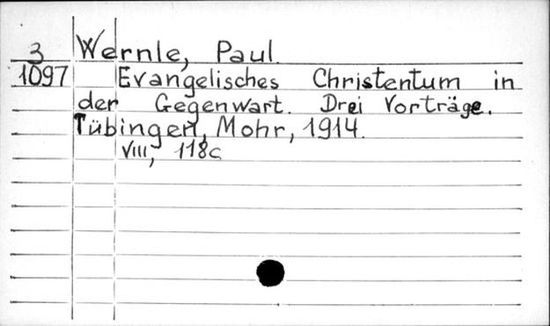 3 Wernle, Paul
1097 Evangelisches Christentum in
der Gegenwart. Drei Vorträge.
Tübingen, Mohr, 1914.
VIII, 118c